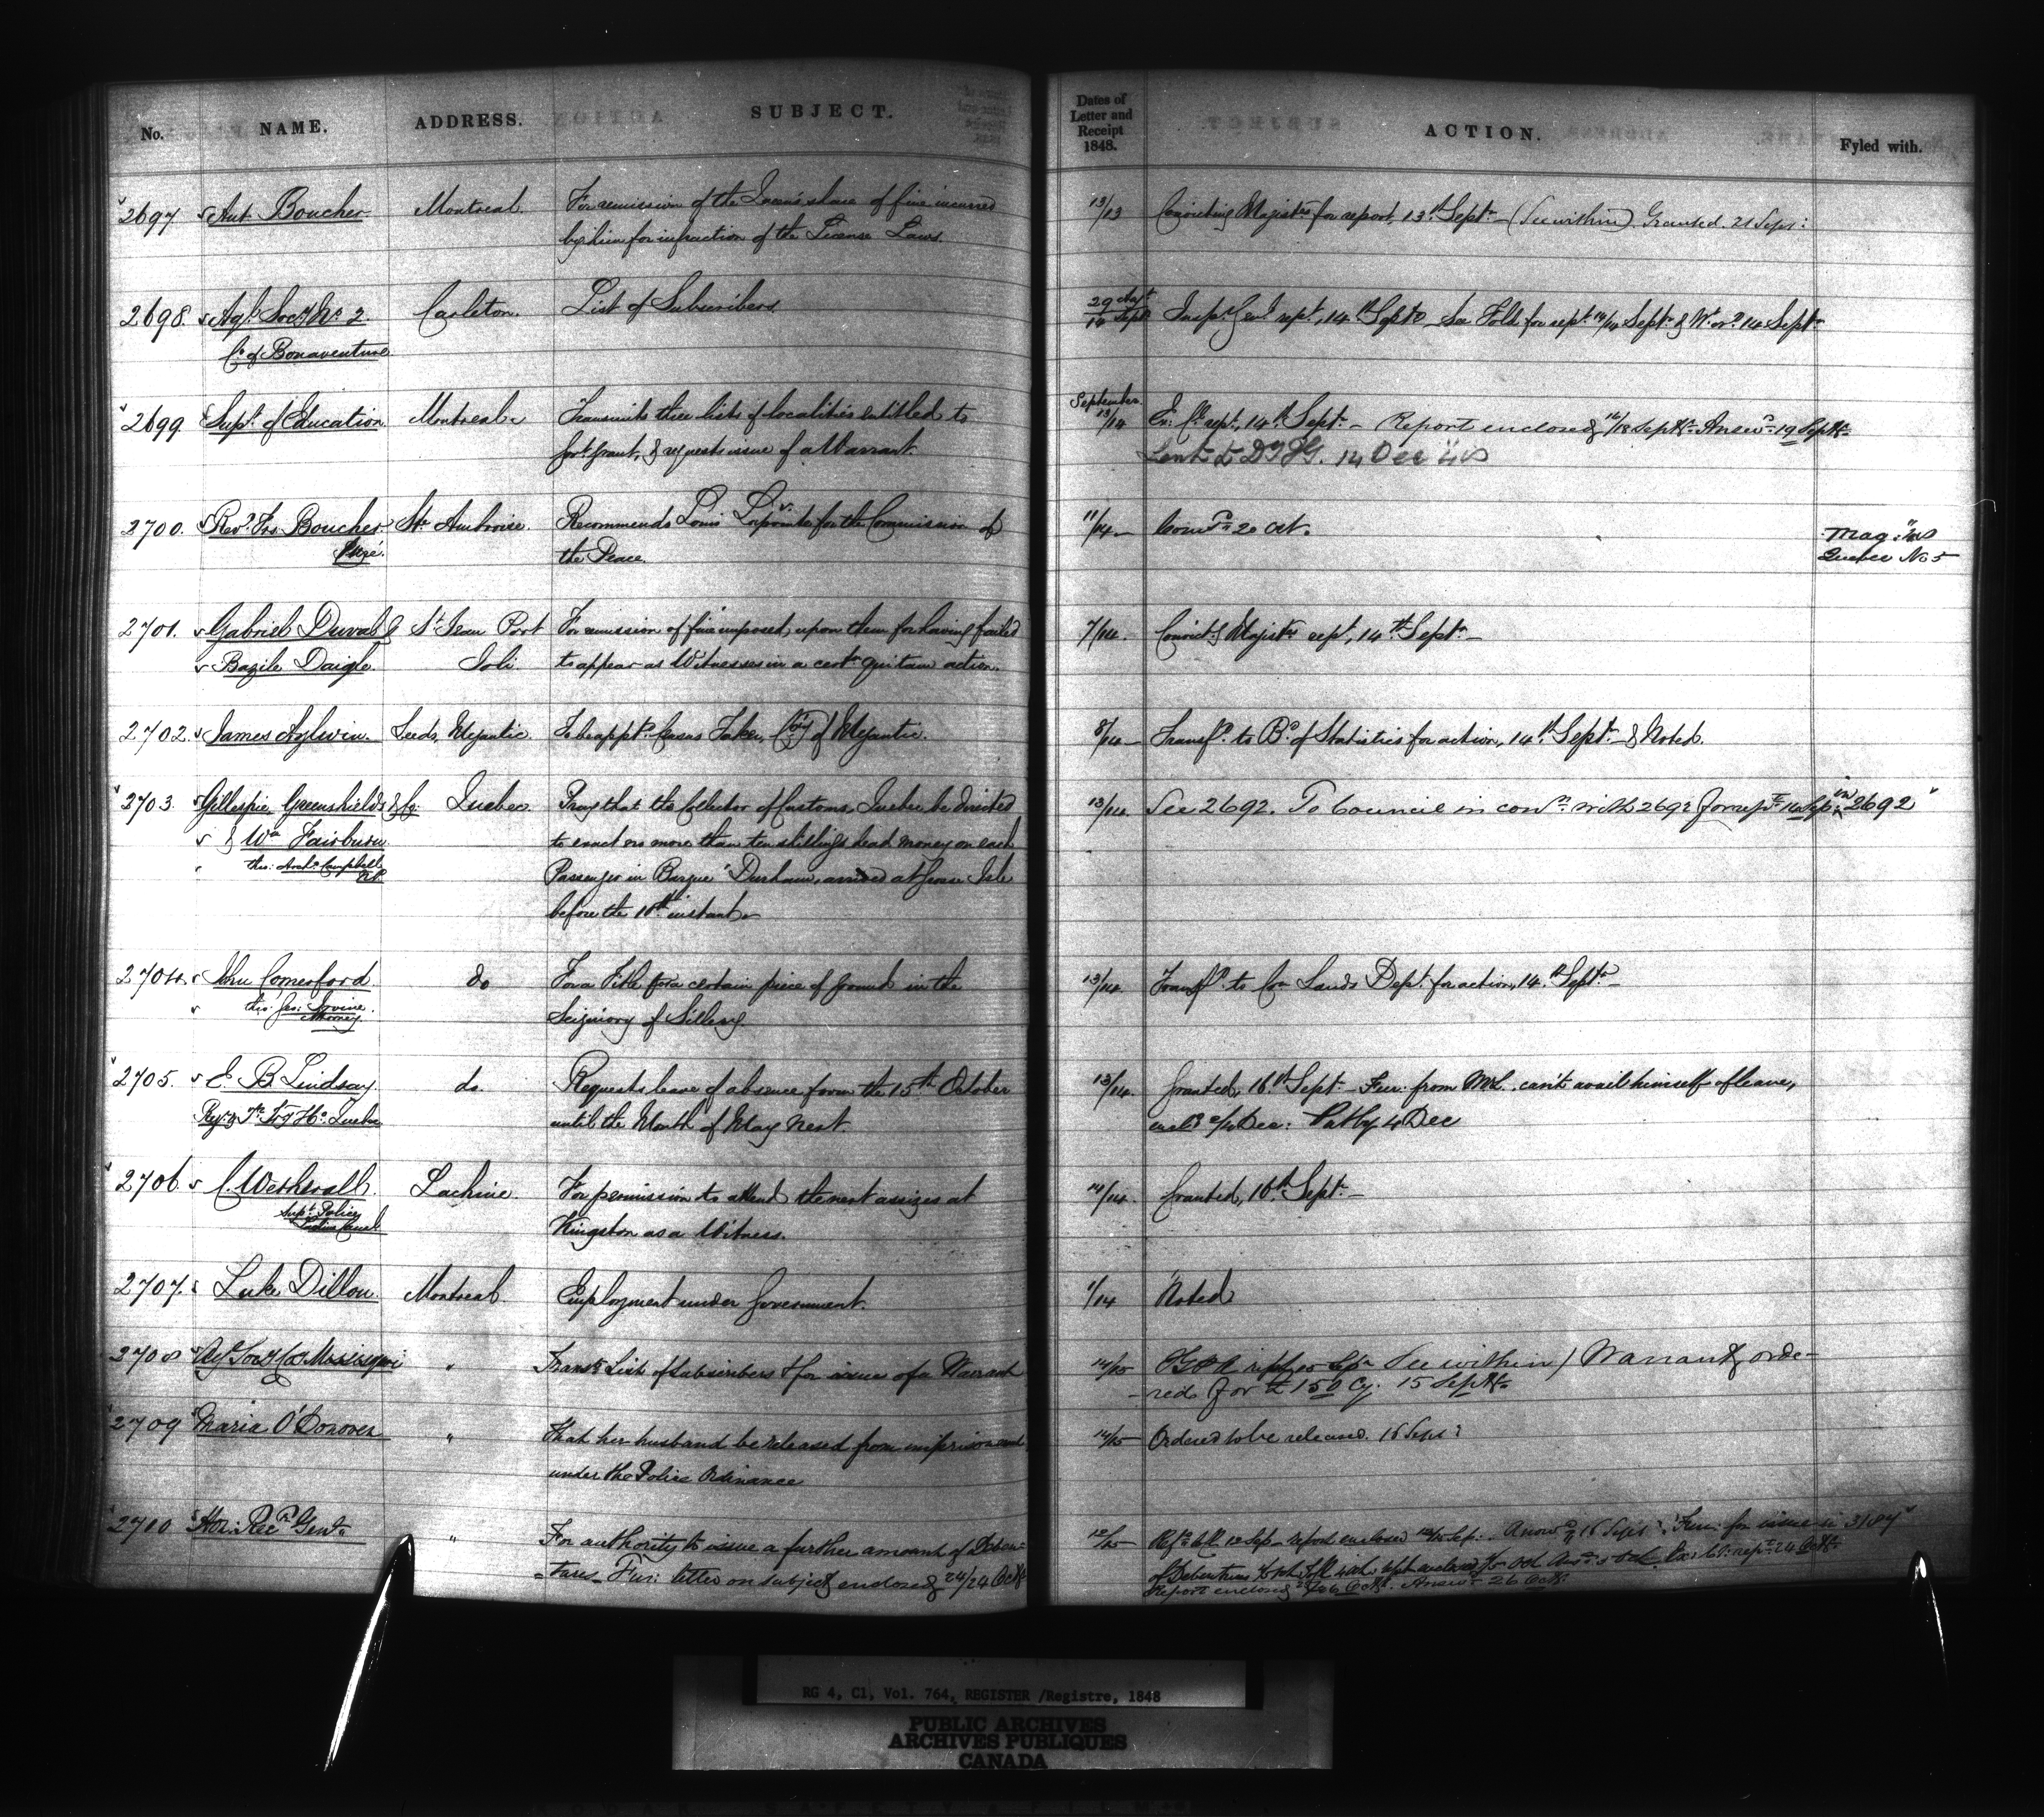 No. NAME. ADDRESS. SUBJECT. Dates of Letter and Receipt 1848. ACTION. Fyled with.
2697 Ant. Boucher Montreal For remission of the Queen's share of fine incurred 13/13 Convicting Magistes for report, 13th Sept. (See within) Granted. 21 Sept:
by him for infraction of the License Laws.
2698. Agl. Socy No. 2. Carleton. List of Subscribers 29 Augt 14 Sept Insp. Genl rept, 14th Sept See Folds for rept 14/14 Sept & Wt ord 14 Sept
Co. of Bonaventure
2699 Supt. of Education Montreal Transmits three lists of localities entitled to September 13/14 Ex. Cl. rept, 14th Sept. - Report enclosed 16/18 Sept. Answd 19 Sept.
Govt. grant, & requests issue of a Warrant. Sent to 14 Dec
2700. Revd. Frs. Boucher Ste Ambroise. Recommends Louis for the Commission of 11/14 20 Oct.
Curé. the Peace. Mag: 
Quebec No 5
2701. Gabriel Duval & St Jean Port For remission of fine imposed, upon them for having failed 7/14. Convictg Magistes rept, 14th Sept
Bazile Daigle. Joli. to appear as Witnesses in a certn quitam action.
2702. James Aylwin. Leeds, Megantic. To be apptd Census Taker, Coty of Megantic. 8/14 Transfd. to Bd. of Statistics for action, 14th Sept & Noted.
2703. Gillespie, Greenshields & Co: Quebec. Pray that the Collector of Customs, Quebec be directed 13/14 See 2692. To Council in conn with 2692 for rept 14 Sep: in 2692
& Wm Fairburn to exact no more than ten shillings head money on each
thro: Archd Campbell N.P. Passenger in Barque "Durham, arrived at Grosse Isle
before the 10th instant.
2704. John Comerford Do For a Title for a certain piece of ground in the 13/14. Transfd. to Crn Lands Dept. for action, 14th Sept
thro' Jas: Irvine Attorney. Seigniory of Sillery.
2705. E. B. Lindsay do. Requests leave of absence from the 15th October 13/14. Granted, 16th Sept - Fur: from Mr L. can't avail himself of leave,
Quebec until the Month of May next. Dec: Put by 4 Dec
2706 C. Wetherall. Lachine. For permission to attend the next assizes at 14/14. Granted, 16th Sept
Supt. Police Lachine Canal Kingston as a Witness.
2707. Luke Dillon Montreal. Employment under Government. 1/14 Noted
2708 Agl Socy Co Missisquoi " Transts List of subscribers & for issue of a Warrant 14/15 rept 15 Sepr See within / Warrant, orde-
-red for £150 Cy. 15 Sept.
2709 Maria O'Donoven " That her husband be released from imprisonment 14/15 Ordered to be released. 16 Sept:
under the Police Ordinance
2710 Hon: Recr Genl. " For authority to issue a further amount of Deben- 12/15 12 Sep - report enclosed 14/15 Sep: Answd 16 Sept: Fur: for issue in 3104
-tures - Fur: letter on subject enclosed 24/24 Octr of Debentures
Report enclosed 26 Octr. Answd 26 Octr.
RG 4, C1, Vol. 764, REGISTER /Registre, 1848
PUBLIC ARCHIVES
ARCHIVES PUBLIQUES
CANADA